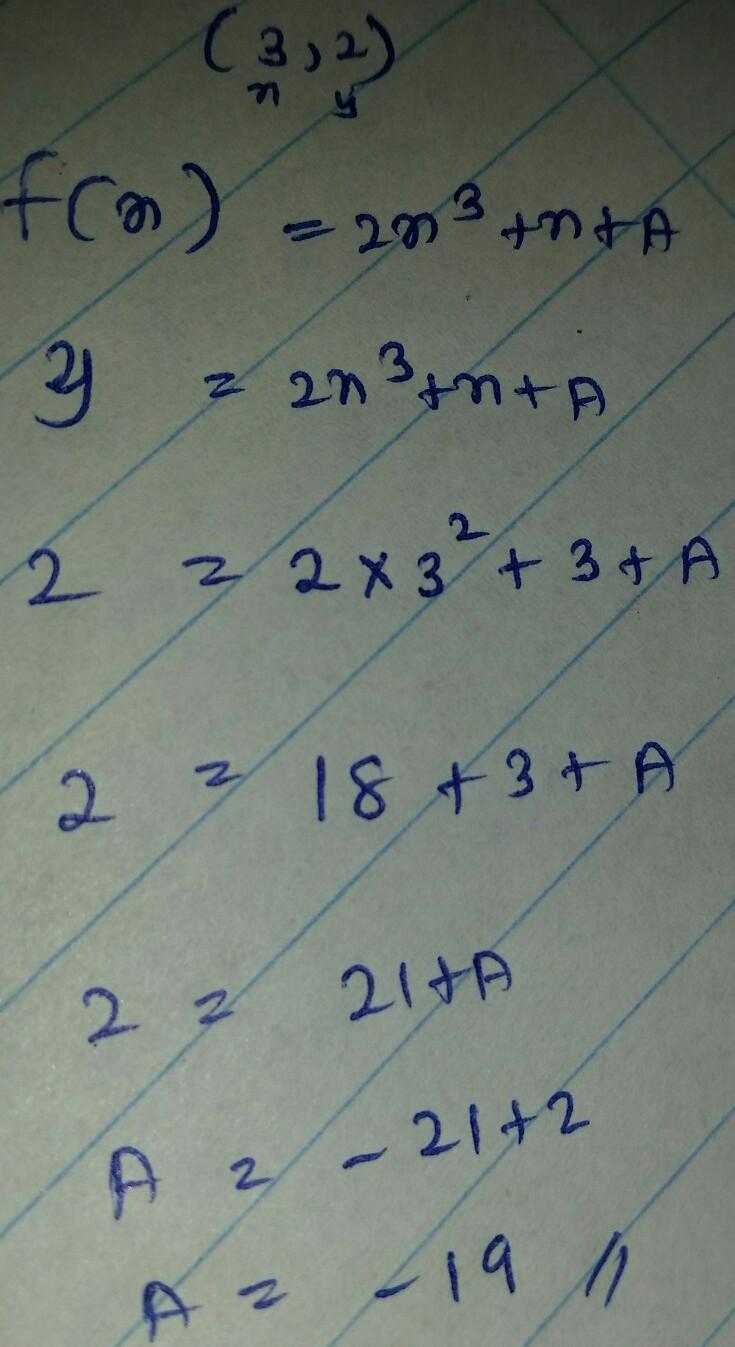 (3,2)
x y
f(x) = 2x³ +x+A
y = 2x³+x+A
2 = 2×3²+3+A
2 = 18+3+A
2 = 21+A
A = -21+2
A = -19 //